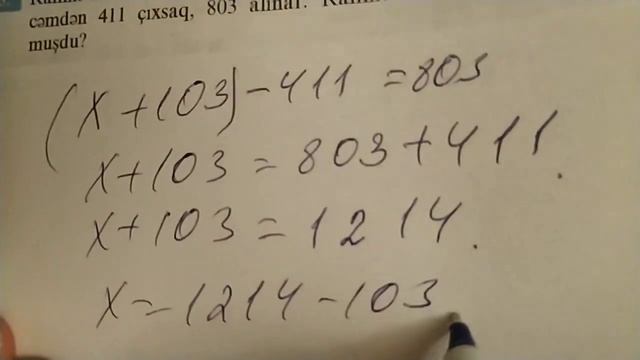 cəmdən 411 çıxsaq, 803 alınar.
muşdu?
(x+103)-411=803
x+103=803+411.
x+103=1214.
x=1214-103